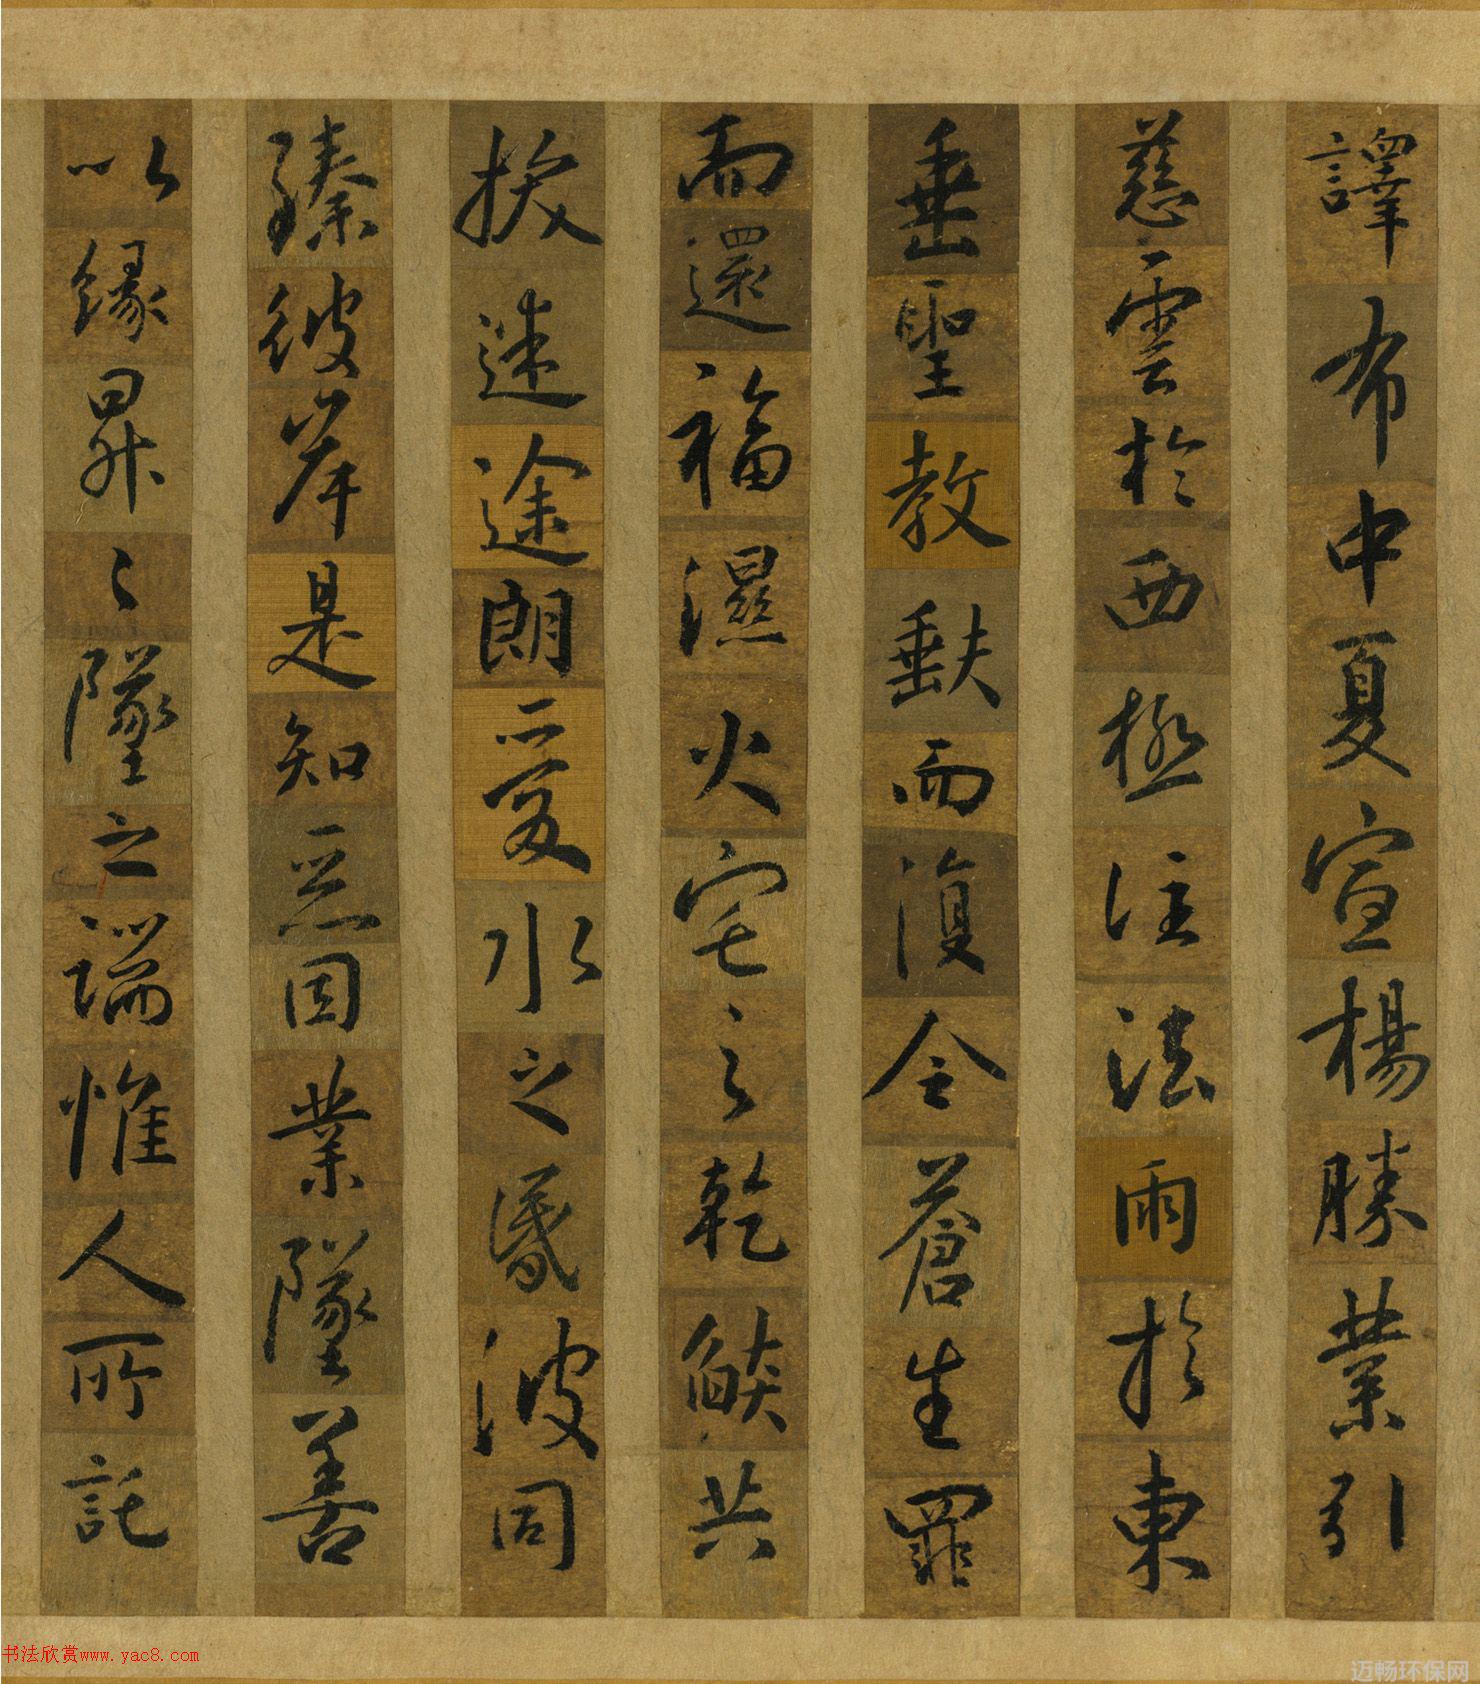 譯布中夏宣楊勝業引
慈雲於西極注法雨於東
垂聖教缺而復全蒼生罪
而還福濕火宅之乾燄共
拔迷途朗愛水之昏波同
臻彼岸是知惡因業墜善
以緣昇〻墜之端惟人所託
书法欣赏www.yac8.com
迈畅环保网